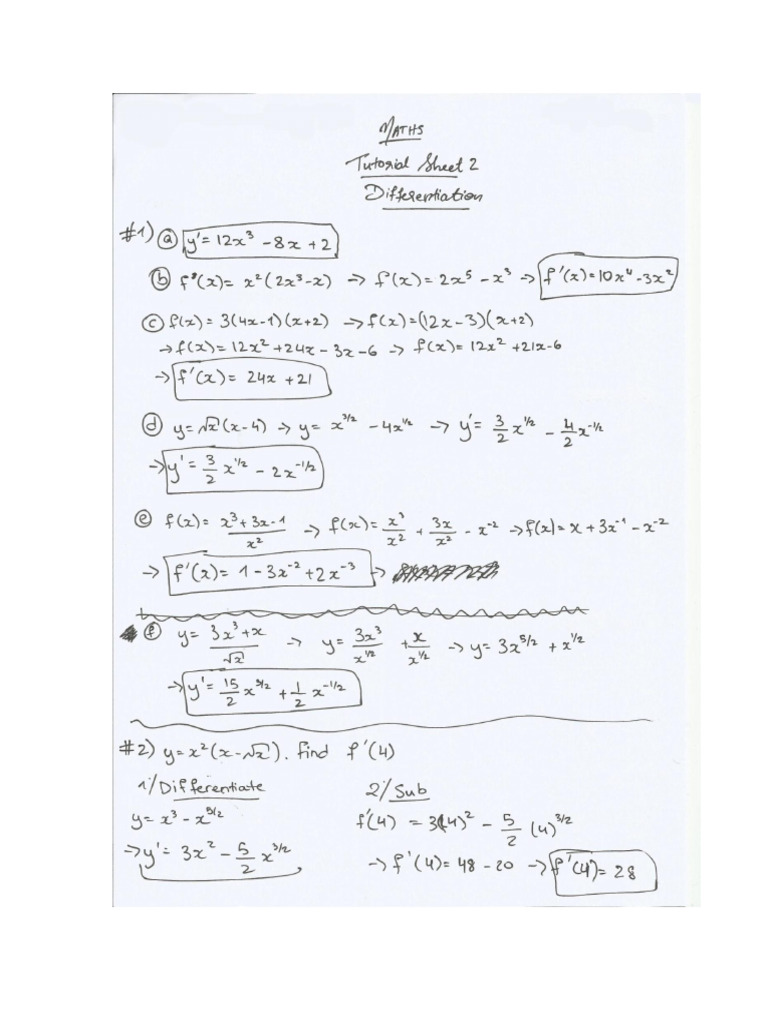 MATHS
Tutorial Sheet 2
Differentiation
#1) ⓐ y' = 12x³ - 8x + 2
ⓑ f'(x) = x²(2x³-x) → f(x) = 2x⁵ - x³ → f'(x) = 10x⁴ - 3x²
ⓒ f(x) = 3(4x-1)(x+2) → f(x) = (12x-3)(x+2)
→ f(x) = 12x² + 24x - 3x - 6 → f(x) = 12x² + 21x - 6
→ f'(x) = 24x + 21
ⓓ y = √x (x-4) → y = x^(3/2) - 4x^(1/2) → y' = 3/2 x^(1/2) - 4/2 x^(-1/2)
→ y' = 3/2 x^(1/2) - 2x^(-1/2)
ⓔ f(x) = (x³+3x-1)/x² → f(x) = x³/x² + 3x/x² - x⁻² → f(x) = x + 3x⁻¹ - x⁻²
→ f'(x) = 1 - 3x⁻² + 2x⁻³ →
ⓕ y = (3x³+x)/√x → y = 3x³/x^(1/2) + x/x^(1/2) → y = 3x^(5/2) + x^(1/2)
→ y' = 15/2 x^(3/2) + 1/2 x^(-1/2)
#2) y = x²(x-√x). Find f'(4)
1/ Differentiate
y = x³ - x^(5/2)
→ y' = 3x² - 5/2 x^(3/2)
2/ Sub
f'(4) = 3(4)² - 5/2 (4)^(3/2)
→ f'(4) = 48 - 20 → f'(4) = 28